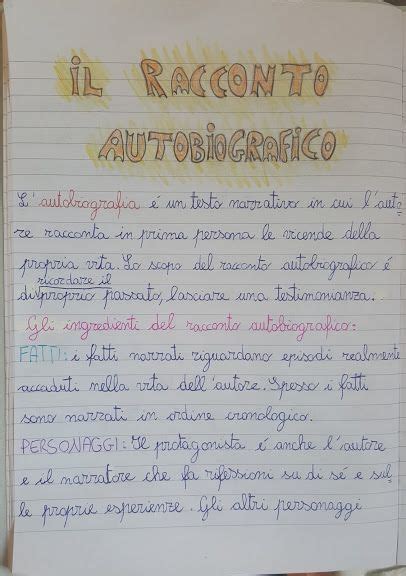 IL RACCONTO
AUTOBIOGRAFICO
L'autobiografia é un testo narrativo in cui l'auto-
re racconta in prima persona le vicende della
propria vita. Lo scopo del racconto autobiografico é
ricordare il
di proprio passato, lasciare una testimonianza.
Gli ingredienti del racconto autobiografico:
FATTI: i fatti narrati riguardano episodi realmente
accaduti nella vita dell'autore. Spesso i fatti
sono narrati in ordine cronologico.
PERSONAGGI: Il protagonista é anche l'autore
e il narratore che fa riflessioni su di sé e sul-
le proprie esperienze. Gli altri personaggi